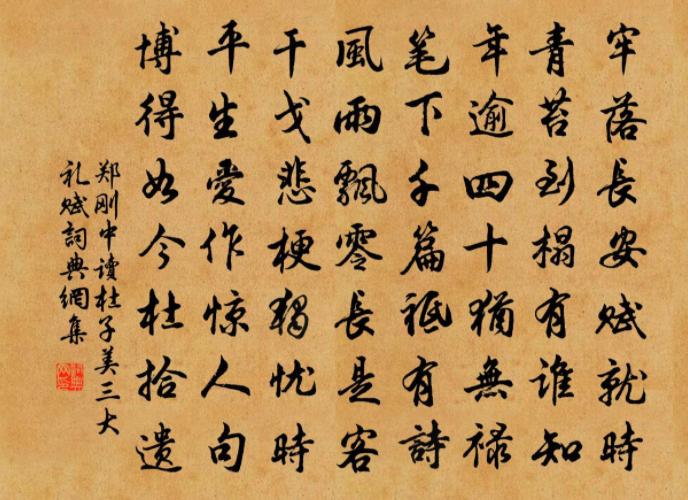 牢落長安賦就時
青苔到榻有誰知
年逾四十猶無禄
笔下千篇祗有詩
風雨飄零長是客
干戈悲梗獨忧時
平生愛作惊人句
博得如今杜拾遗
郑刚中讀杜子美三大
礼赋詞典網集